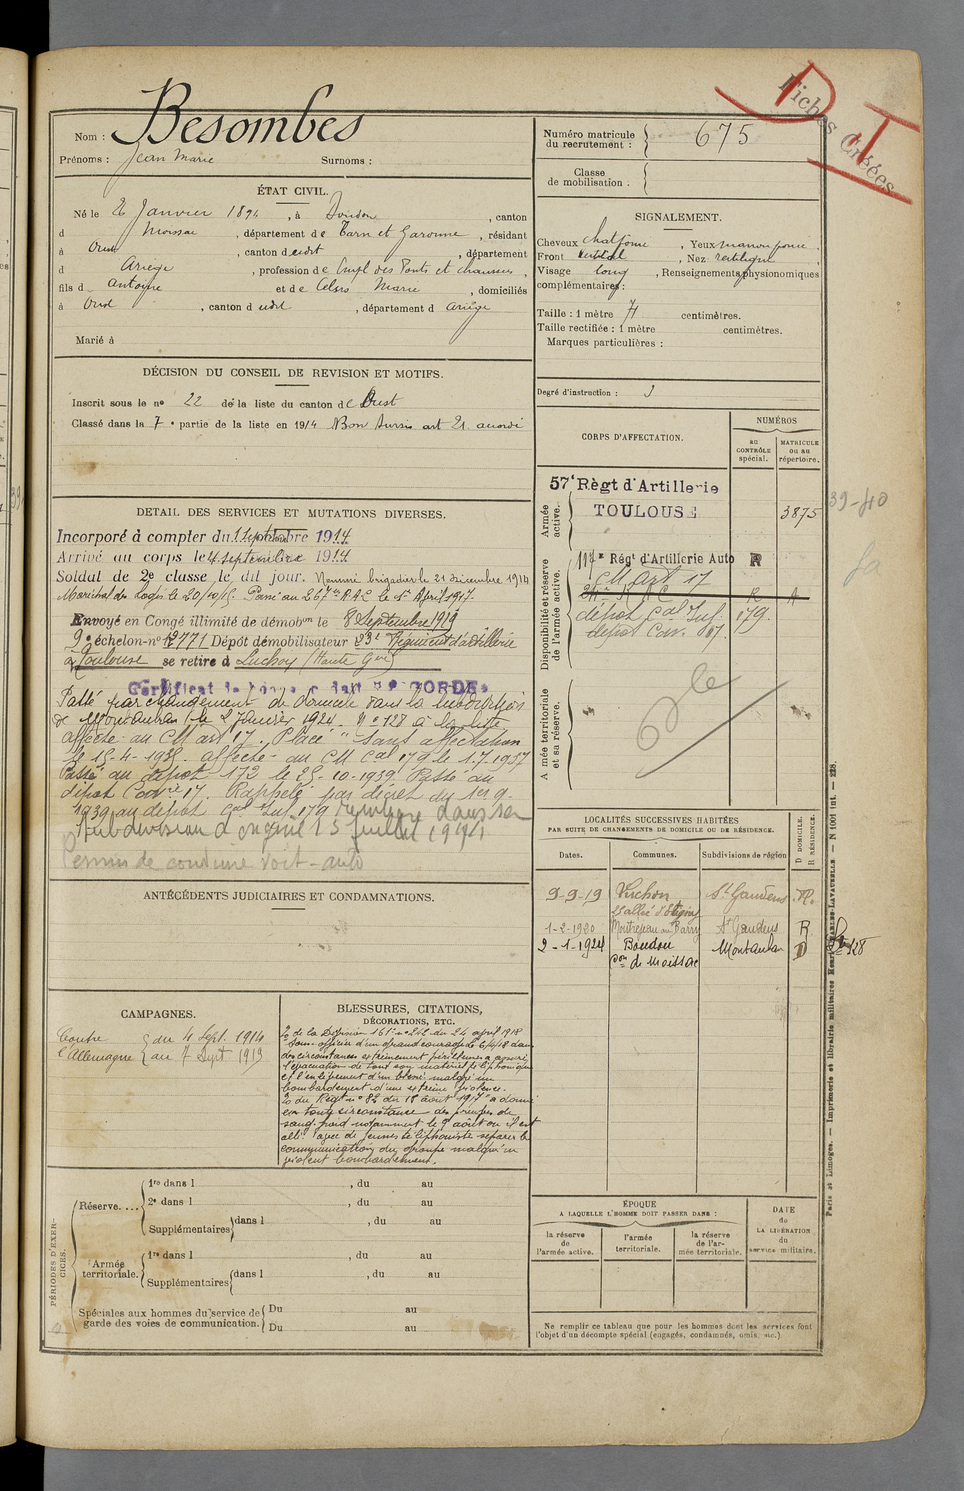 Fiches Créées
D T
Nom : Besombes
Prénoms : Jean Marie Surnoms :
Numéro matricule du recrutement : 675
Classe de mobilisation :
ÉTAT CIVIL.
Né le 2 Janvier 1894, à Boudou, canton
d Moissac, département de Tarn et Garonne, résidant
à Oust, canton d eudit, département
d Ariège, profession de Empl des Ponts et chaussées,
fils d Antoine et de Celsis Marie, domiciliés
à Oust, canton d eudit, département d Ariège
Marié à
SIGNALEMENT.
Cheveux chat foncé, Yeux marron foncé,
Front vertical, Nez rectiligne,
Visage long, Renseignements physionomiques
complémentaires :
Taille : 1 mètre 71 centimètres.
Taille rectifiée : 1 mètre centimètres.
Marques particulières :
Degré d'instruction : 3
DÉCISION DU CONSEIL DE REVISION ET MOTIFS.
Inscrit sous le no 22 de la liste du canton de Oust
Classé dans la 7e partie de la liste en 1914 Bon Sursis art 21 accordé
DÉTAIL DES SERVICES ET MUTATIONS DIVERSES.
Incorporé à compter du 1 Septembre 1914
Arrivé au corps le 4 septembre 1914
Soldat de 2e classe le dit jour. Nommé brigadier le 21 décembre 1914
Maréchal des Logis le 20/10/15. Passé au 267e R.A.C le 1er Avril 1917.
Envoyé en Congé illimité de démobon le 8 Septembre 1919
9e échelon-no 12771 Dépôt démobilisateur 23e Régiment d'artillerie
à Toulouse se retire à Luchon (Haute Gne)
Certificat de bonne conduite ACCORDÉ
Passé par changement de domicile dans la subdivision
de Montauban le 2 Janvier 1924. No 128 à la liste
affecté au CM art 17. Placé "Sans affectation
le 15-4-1935. affecté au CM Cal 179 le 1.7.1937
Passé au dépôt 172 le 25-10-1939. Passé au
dépôt Cavie 17. Rappelé par décret du 1er 9-
1939 au dépôt Cal Inf 179 réintégré dans sa
Subdivision d'origine 15 juillet 1941
Permis de conduire voit-auto
CORPS D'AFFECTATION.
NUMÉROS
au CONTRÔLE spécial.
MATRICULE ou au répertoire.
Armée active.
57e Règt d'Artillerie
TOULOUSE
3875
39-40
Disponibilité et réserve de l'armée active.
117e Régt d'Artillerie Auto R
CM Art 17
dépôt Cal Inf 179.
dépôt Cav. 17.
Armée territoriale et sa réserve.
LOCALITÉS SUCCESSIVES HABITÉES
PAR SUITE DE CHANGEMENTS DE DOMICILE OU DE RÉSIDENCE.
Dates. Communes. Subdivisions de région
D DOMICILE. R RÉSIDENCE.
9-9-19 Luchon St Gaudens R.
25 allée d'Etigny
1-2-1920 Montrejeau au Barry St Gaudens R
2-1-1924 Boudou Montauban D 128
con de Moissac
ANTÉCÉDENTS JUDICIAIRES ET CONDAMNATIONS.
CAMPAGNES.
Contre l'Allemagne
du 4 Sept. 1914
au 7 Sept 1919
BLESSURES, CITATIONS,
DÉCORATIONS, ETC.
O de la Division 161e no 242 du 24 avril 1918
"Sous-officier d'un grand courage le 6/4/18 dans
des circonstances extrêmement périlleuses a assuré
l'évacuation de tout son matériel téléphonique
et l'enlèvement d'un blessé malgré un
bombardement d'une extrême violence.
O du Régt no 82 du 18 août 1917 "a donné
en toute circonstance des preuves de
sang-froid notamment le 9 août où il est
allé avec de jeunes téléphonistes réparer les
communications du groupe malgré un
violent bombardement.
PÉRIODES D'EXERCICES.
Réserve.... 1re dans l , du au
2e dans l , du au
Supplémentaires dans l , du au
Armée territoriale. 1re dans l , du au
Supplémentaires dans l , du au
Spéciales aux hommes du service de garde des voies de communication. Du au
Du au
ÉPOQUE
A LAQUELLE L'HOMME DOIT PASSER DANS :
la réserve de l'armée active.
l'armée territoriale.
la réserve de l'armée territoriale.
DATE de LA LIBÉRATION du service militaire.
Ne remplir ce tableau que pour les hommes dont les services font
l'objet d'un décompte spécial (engagés, condamnés, omis, etc.).
Paris et Limoges. — Imprimerie et librairie militaires Henri CHARLES-LAVAUZELLE. — N 1001 int. — 228.